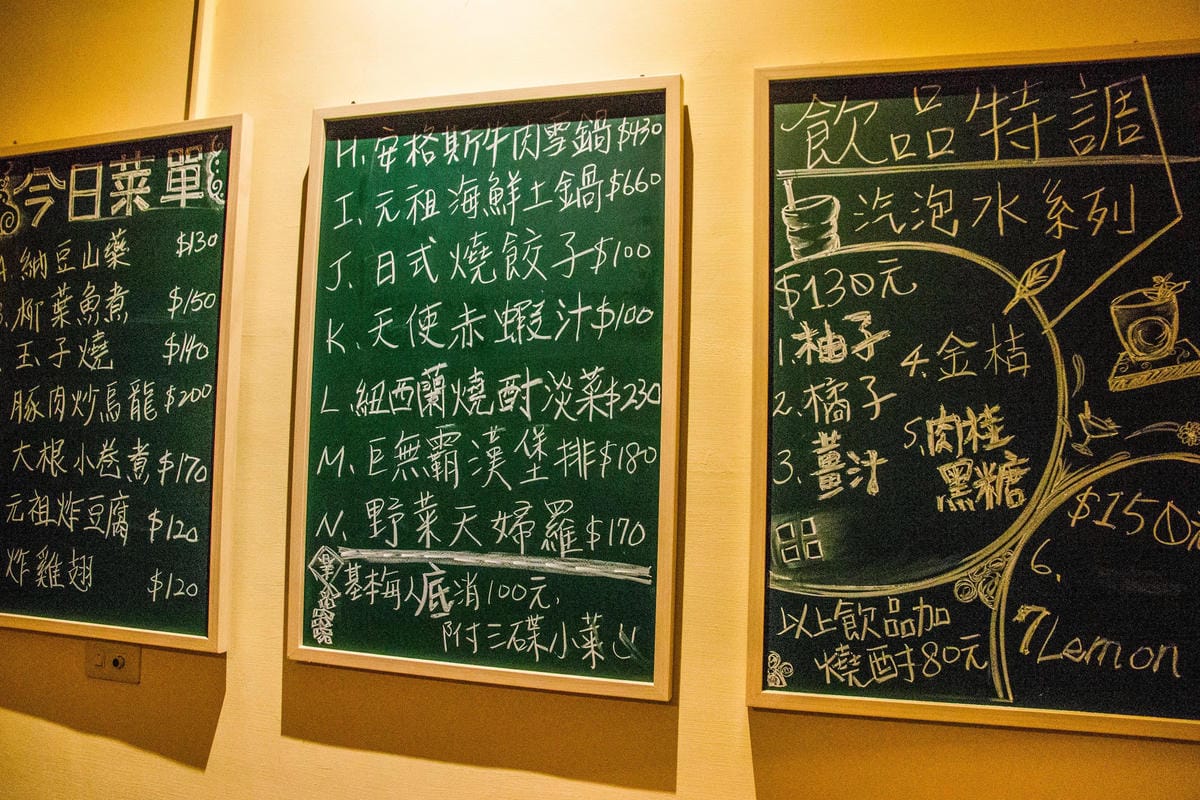 今日菜單
A. 納豆山藥 $130
柳葉魚煮 $150
玉子燒 $140
豚肉炒烏龍 $200
大根小卷煮 $170
元祖炸豆腐 $120
炸雞翅 $120
H. 安格斯牛肉雪鍋 $430
I. 元祖海鮮土鍋 $660
J. 日式燒餃子 $100
K. 天使赤蝦汁 $100
L. 紐西蘭燒酎淡菜 $230
M. 巨無霸漢堡排 $180
N. 野菜天婦羅 $170
基本每人底消100元,
附三碟小菜
飲品特調
汽泡水系列
$130元
1. 柚子
2. 橘子
3. 薑汁
4. 金桔
5. 肉桂
黑糖
以上飲品加
燒酎80元
$150元
6.
7 Lemon